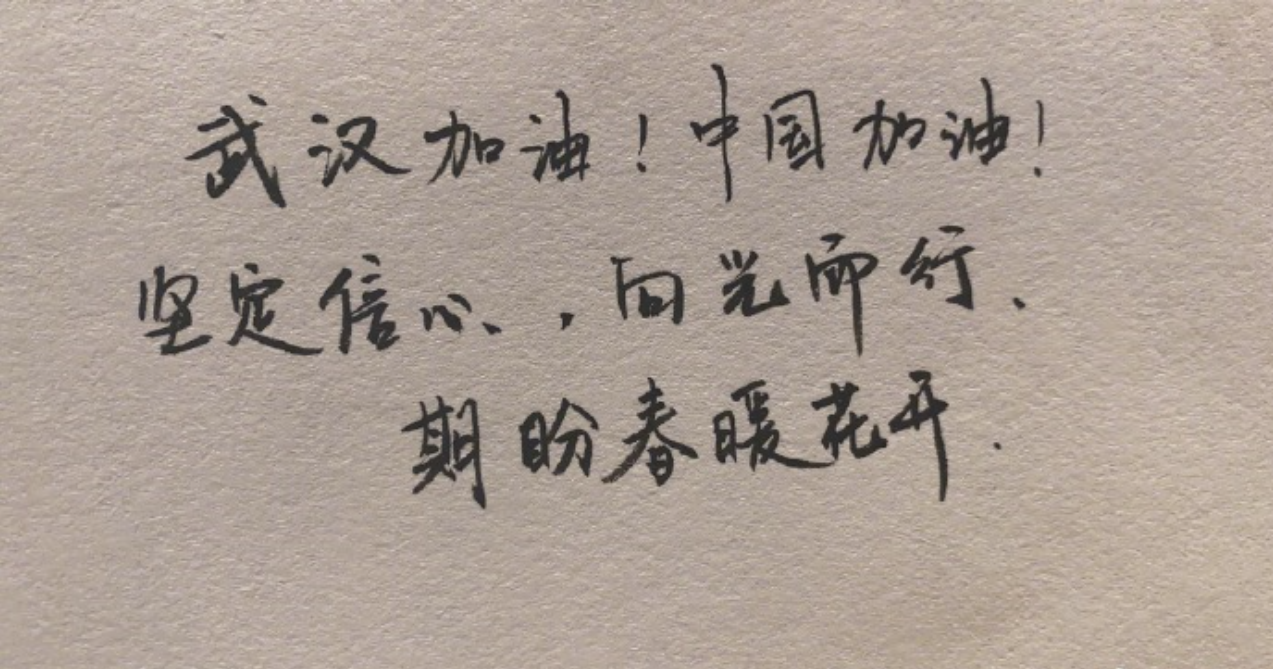 武汉加油！中国加油！
坚定信心，向光而行、
期盼春暖花开.